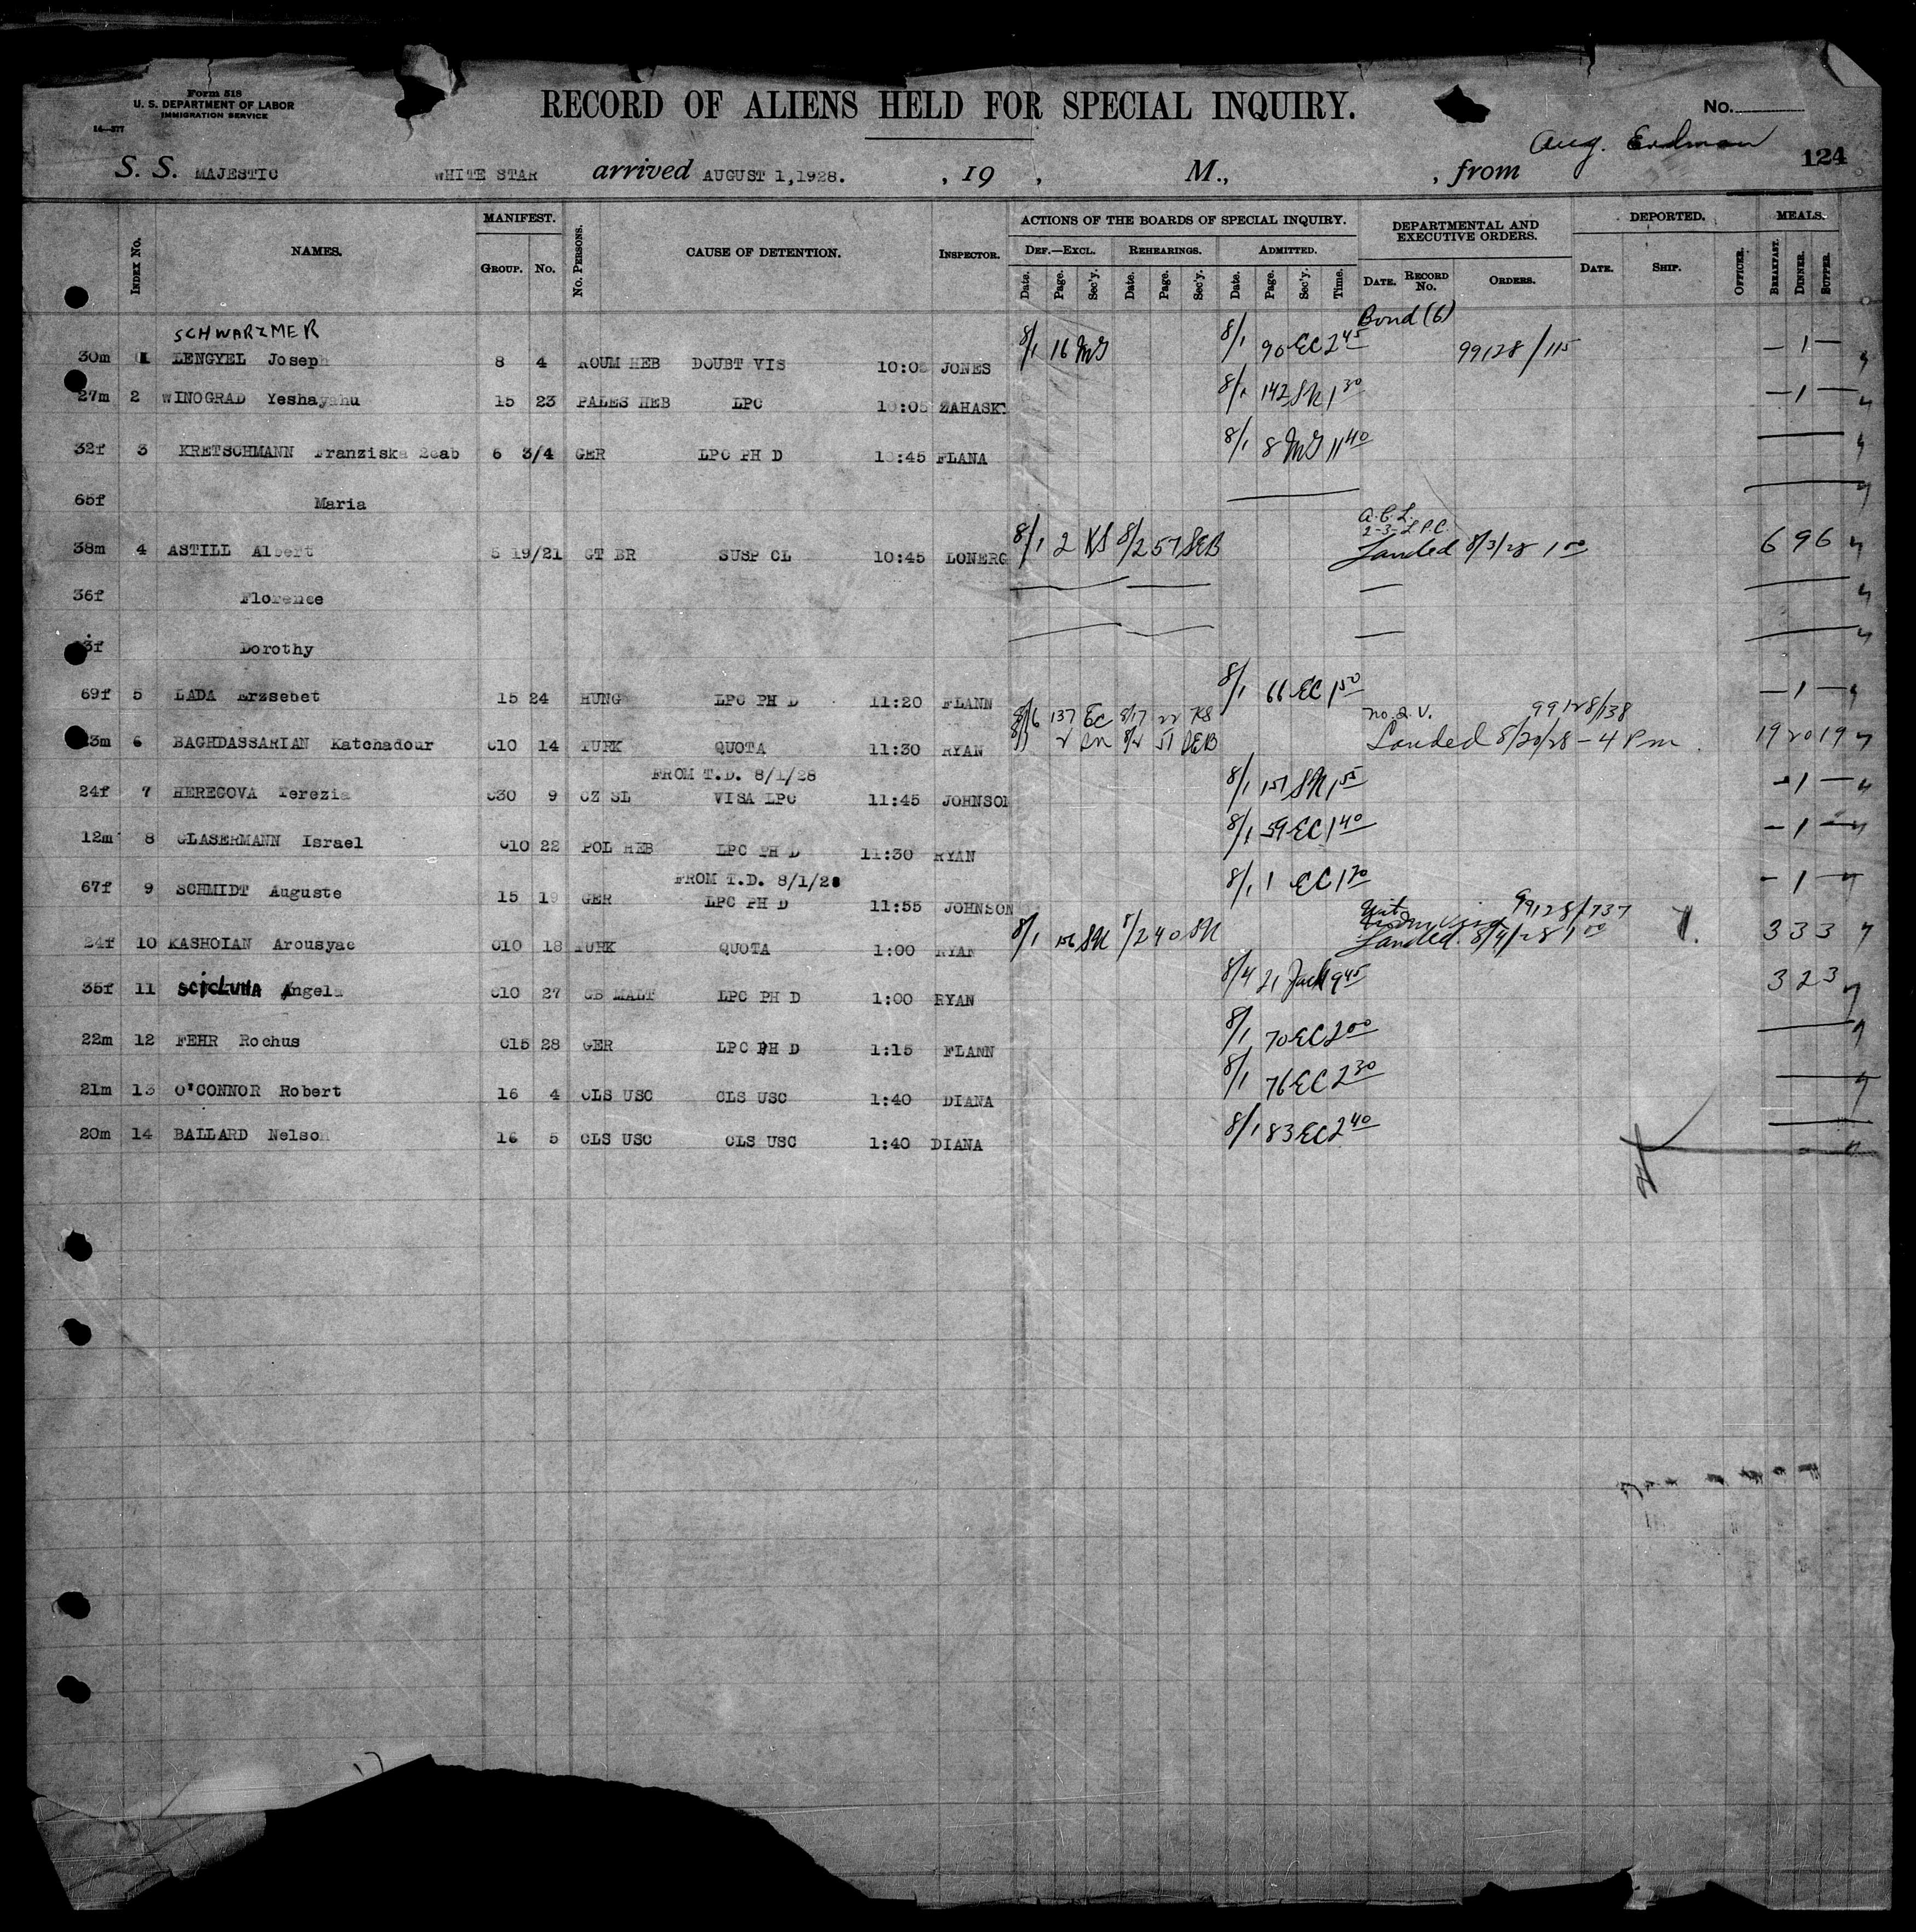 Form 518
U. S. DEPARTMENT OF LABOR
IMMIGRATION SERVICE
14—377
RECORD OF ALIENS HELD FOR SPECIAL INQUIRY.
No.
Aug. Erdman
124
S. S. MAJESTIC WHITE STAR arrived AUGUST 1,1928. , 19 , M., , from
Index No. NAMES. MANIFEST. Group. No. No. Persons. CAUSE OF DETENTION. Inspector. ACTIONS OF THE BOARDS OF SPECIAL INQUIRY. DEPARTMENTAL AND EXECUTIVE ORDERS. DEPORTED. MEALS.
Def.—Excl. Rehearings. Admitted.
Date. Page. Sec'y. Date. Page. Sec'y. Date. Page. Sec'y. Time. Date. Record No. Orders. Date. Ship. Officer. Breakfast. Dinner. Supper.
SCHWARZMER Bond (6)
30m 1 LENGYEL Joseph 8 4 ROUM HEB DOUBT VIS JONES 8/1 16 MG 8/1 90 EC 2 45 99128/115 — 1 —
27m 2 WINOGRAD Yeshayahu 15 23 PALES HEB LPC 10:05 ZAHASK 8/1 142 SM 1 30 — 1 —
32f 3 KRETSCHMANN Franziska 2cab 6 3/4 GER LPC PH D 10:45 FLANA 8/1 8 MG 11 40
65f Maria
2-3-LPC
38m 4 ASTILL Albert 5 19/21 GT BR SUSP CL 10:45 LONERG 8/1 2 KS 8/2 57 SEB Landed 8/3/28 1 00 6 9 6
36f Florence
Dorothy
69f 5 LADA Erzsebet 15 24 HUNG LPC PH D 11:20 FLANN 8/1 66 EC 1 50 — 1 —
137 EC 8/17 22 KS no. 2. V. 99128/138
6 BAGHDASSARIAN Katchadour C10 14 TURK QUOTA 11:30 RYAN 51 SEB Landed 8/20/28 - 4 Pm. 19 20 19
FROM T.D. 8/1/28
24f 7 HEREGOVA Terezia C30 9 CZ SL VISA LPC 11:45 JOHNSON 8/1 151 SM 1 55 — 1 —
12m 8 GLASERMANN Israel C10 22 POL HEB LPC PH D 11:30 RYAN 8/1 59 EC 1 40 — 1 —
FROM T.D. 8/1/28
67f 9 SCHMIDT Auguste 15 19 GER LPC PH D 11:55 JOHNSON 8/1 1 EC 1 20 — 1 —
99128/737
24f 10 KASHOIAN Arousyac C10 18 TURK QUOTA 1:00 RYAN 8/1 156 SM 8/2 40 SM Landed 8/4/28 1 00 3 3 3
35f 11 SCICLUNA Angela C10 27 GB MALT LPC PH D 1:00 RYAN 8/4 21 Jack 9 45 3 2 3
22m 12 FEHR Rochus C15 28 GER LPC PH D 1:15 FLANN 8/1 70 EC 2 00
21m 13 O'CONNOR Robert 16 4 CLS USC CLS USC 1:40 DIANA 8/1 76 EC 2 30
20m 14 BALLARD Nelson 16 5 CLS USC CLS USC 1:40 DIANA 8/1 83 EC 2 40